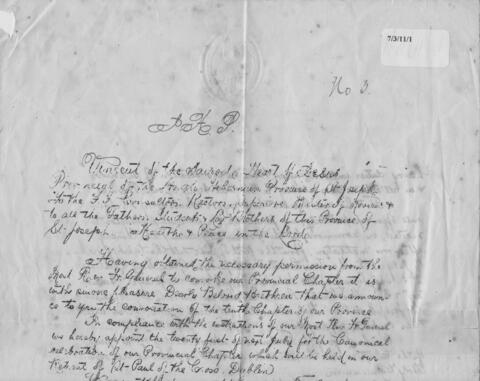 7/3/11/1
No 3.
J X P.
Vincent of the Sacred Heart of Jesus
Provincial of the Anglo Hibernian Province of St Joseph
To the F.F. Consultors, Rectors, Masters of Novices &
to all the Fathers, Students, Lay Brothers of this Province of
St. Joseph. Health & Peace in the Lord.
Having obtained the necessary permission from the
Most Rev Fr General to convoke our Provincial Chapter it is
with sincere pleasure Dearly Beloved Brethren that we announ
ce to you the convocation of the tenth Chapter of our Province
In compliance with the instructions of our Most Rev Fr General
we hereby appoint the twenty first of next July for the Canonical
celebration of our Provincial Chapter which will be held in our
Retreat of St Paul of the Cross Dublin